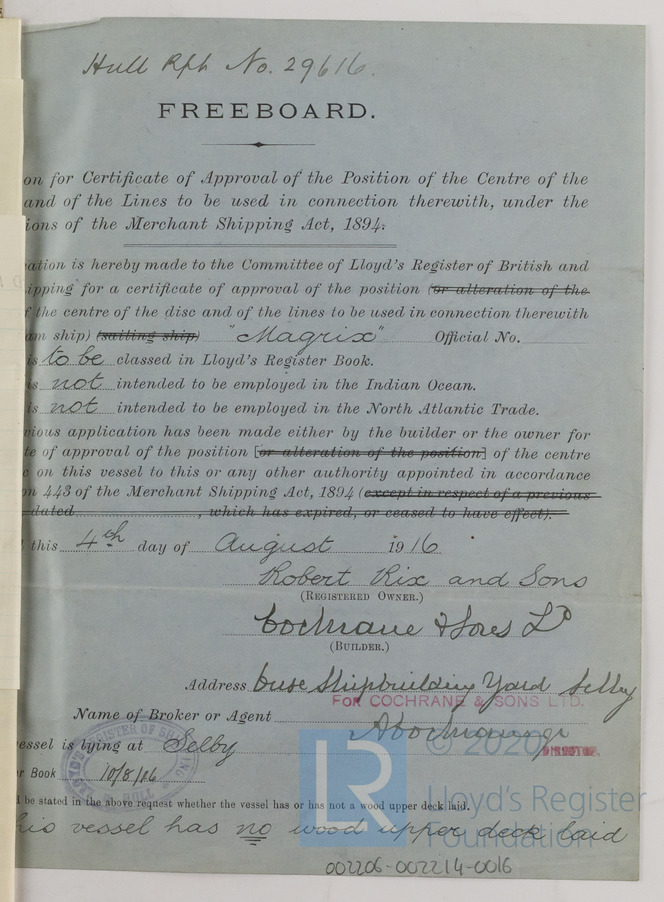 Hull Rpt No. 29616.
FREEBOARD.
on for Certificate of Approval of the Position of the Centre of the
and of the Lines to be used in connection therewith, under the
ions of the Merchant Shipping Act, 1894.
ation is hereby made to the Committee of Lloyd's Register of British and
ipping for a certificate of approval of the position (or alteration of the
f the centre of the disc and of the lines to be used in connection therewith
am ship) (sailing ship) "Magrix" Official No.
is to be classed in Lloyd's Register Book.
is not intended to be employed in the Indian Ocean.
is not intended to be employed in the North Atlantic Trade.
vious application has been made either by the builder or the owner for
te of approval of the position [or alteration of the position] of the centre
c on this vessel to this or any other authority appointed in accordance
on 443 of the Merchant Shipping Act, 1894 (except in respect of a previous
dated , which has expired, or ceased to have effect).
this 4th day of August 1916.
Robert Rix and Sons
(REGISTERED OWNER.)
Cochrane & Sons Ld
(BUILDER.)
Address Ouse Shipbuilding Yard Selby
FOR COCHRANE & SONS LTD.
Name of Broker or Agent
DIRECTOR.
essel is lying at Selby
r Book 10/8/16
LLOYD'S REGISTER OF SHIPPING
HULL
d be stated in the above request whether the vessel has or has not a wood upper deck laid.
his vessel has no wood upper deck laid
LR
© 2020
Lloyd's Register
Foundation
002206-002214-0016